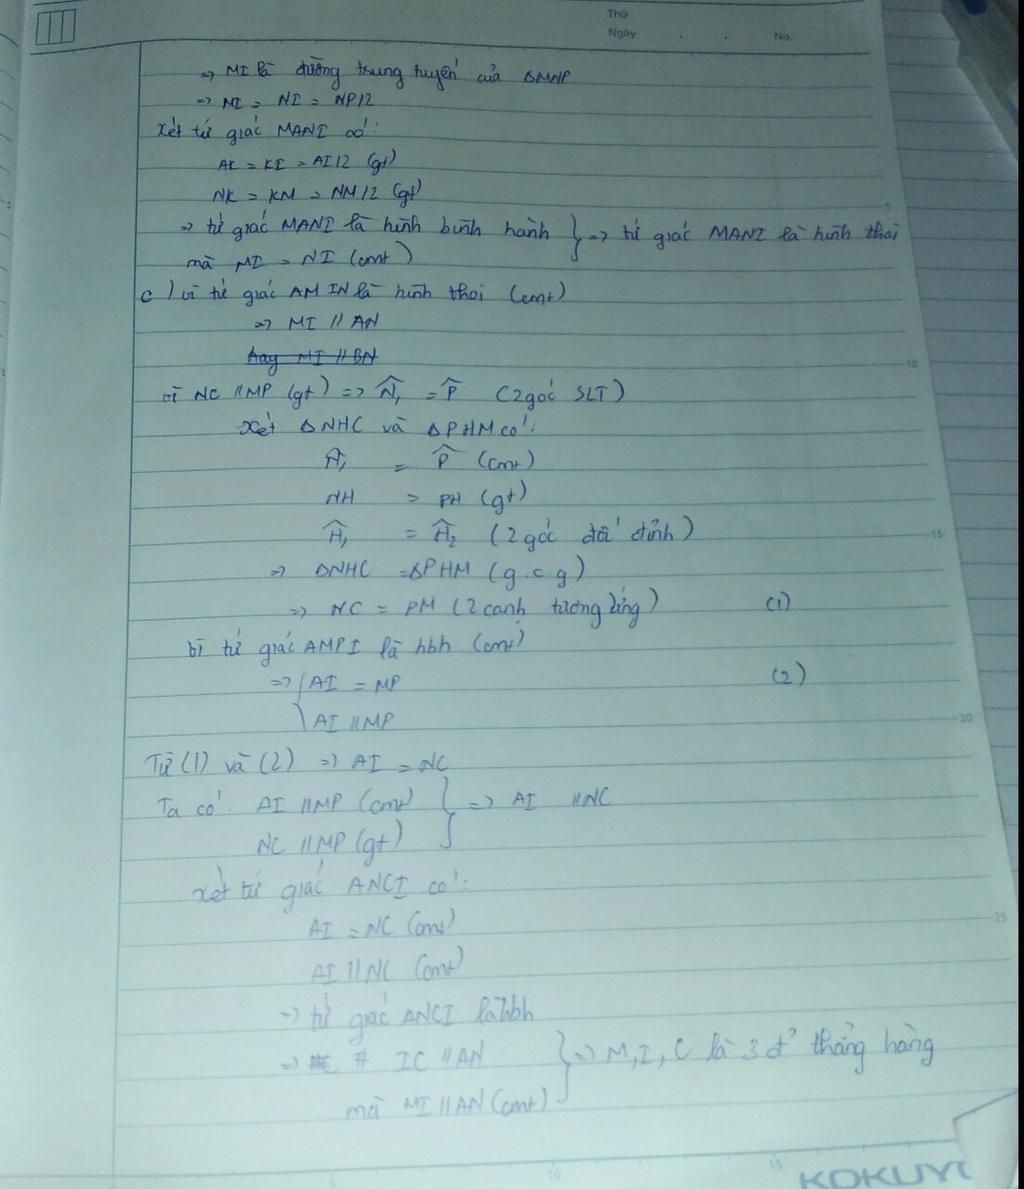 Thứ
Ngày . . No.
=> MI là đường trung tuyến của ΔMNP
=> MI = NI = NP/2
Xét tứ giác MANI có:
AK = KI = AI/2 (gt)
NK = KM = NM/2 (gt)
=> tứ giác MANI là hình bình hành } => tứ giác MANI là hình thoi
mà MI = NI (cmt)
c) vì tứ giác AMIN là hình thoi (cmt)
=> MI // AN
hay MI // BN
vì NC // MP (gt) => N̂₁ = P̂ (2 góc SLT)
Xét ΔNHC và ΔPHM có:
N̂₁ = P̂ (cmt)
NH = PH (gt)
Ĥ₁ = Ĥ₂ (2 góc đối đỉnh)
=> ΔNHC = ΔPHM (g.c.g)
=> NC = PM (2 cạnh tương ứng) (1)
vì tứ giác AMPI là hbh (cmt)
=> { AI = MP (2)
AI // MP
Từ (1) và (2) => AI = NC
Ta có: AI // MP (cmt) } => AI // NC
NC // MP (gt)
Xét tứ giác ANCI có:
AI = NC (cmt)
AI // NC (cmt)
=> tứ giác ANCI là hbh
=> IC // AN } => M, I, C là 3 đ' thẳng hàng
mà MI // AN (cmt)
5
10
15
20
25
5 10 15
KOKUYO